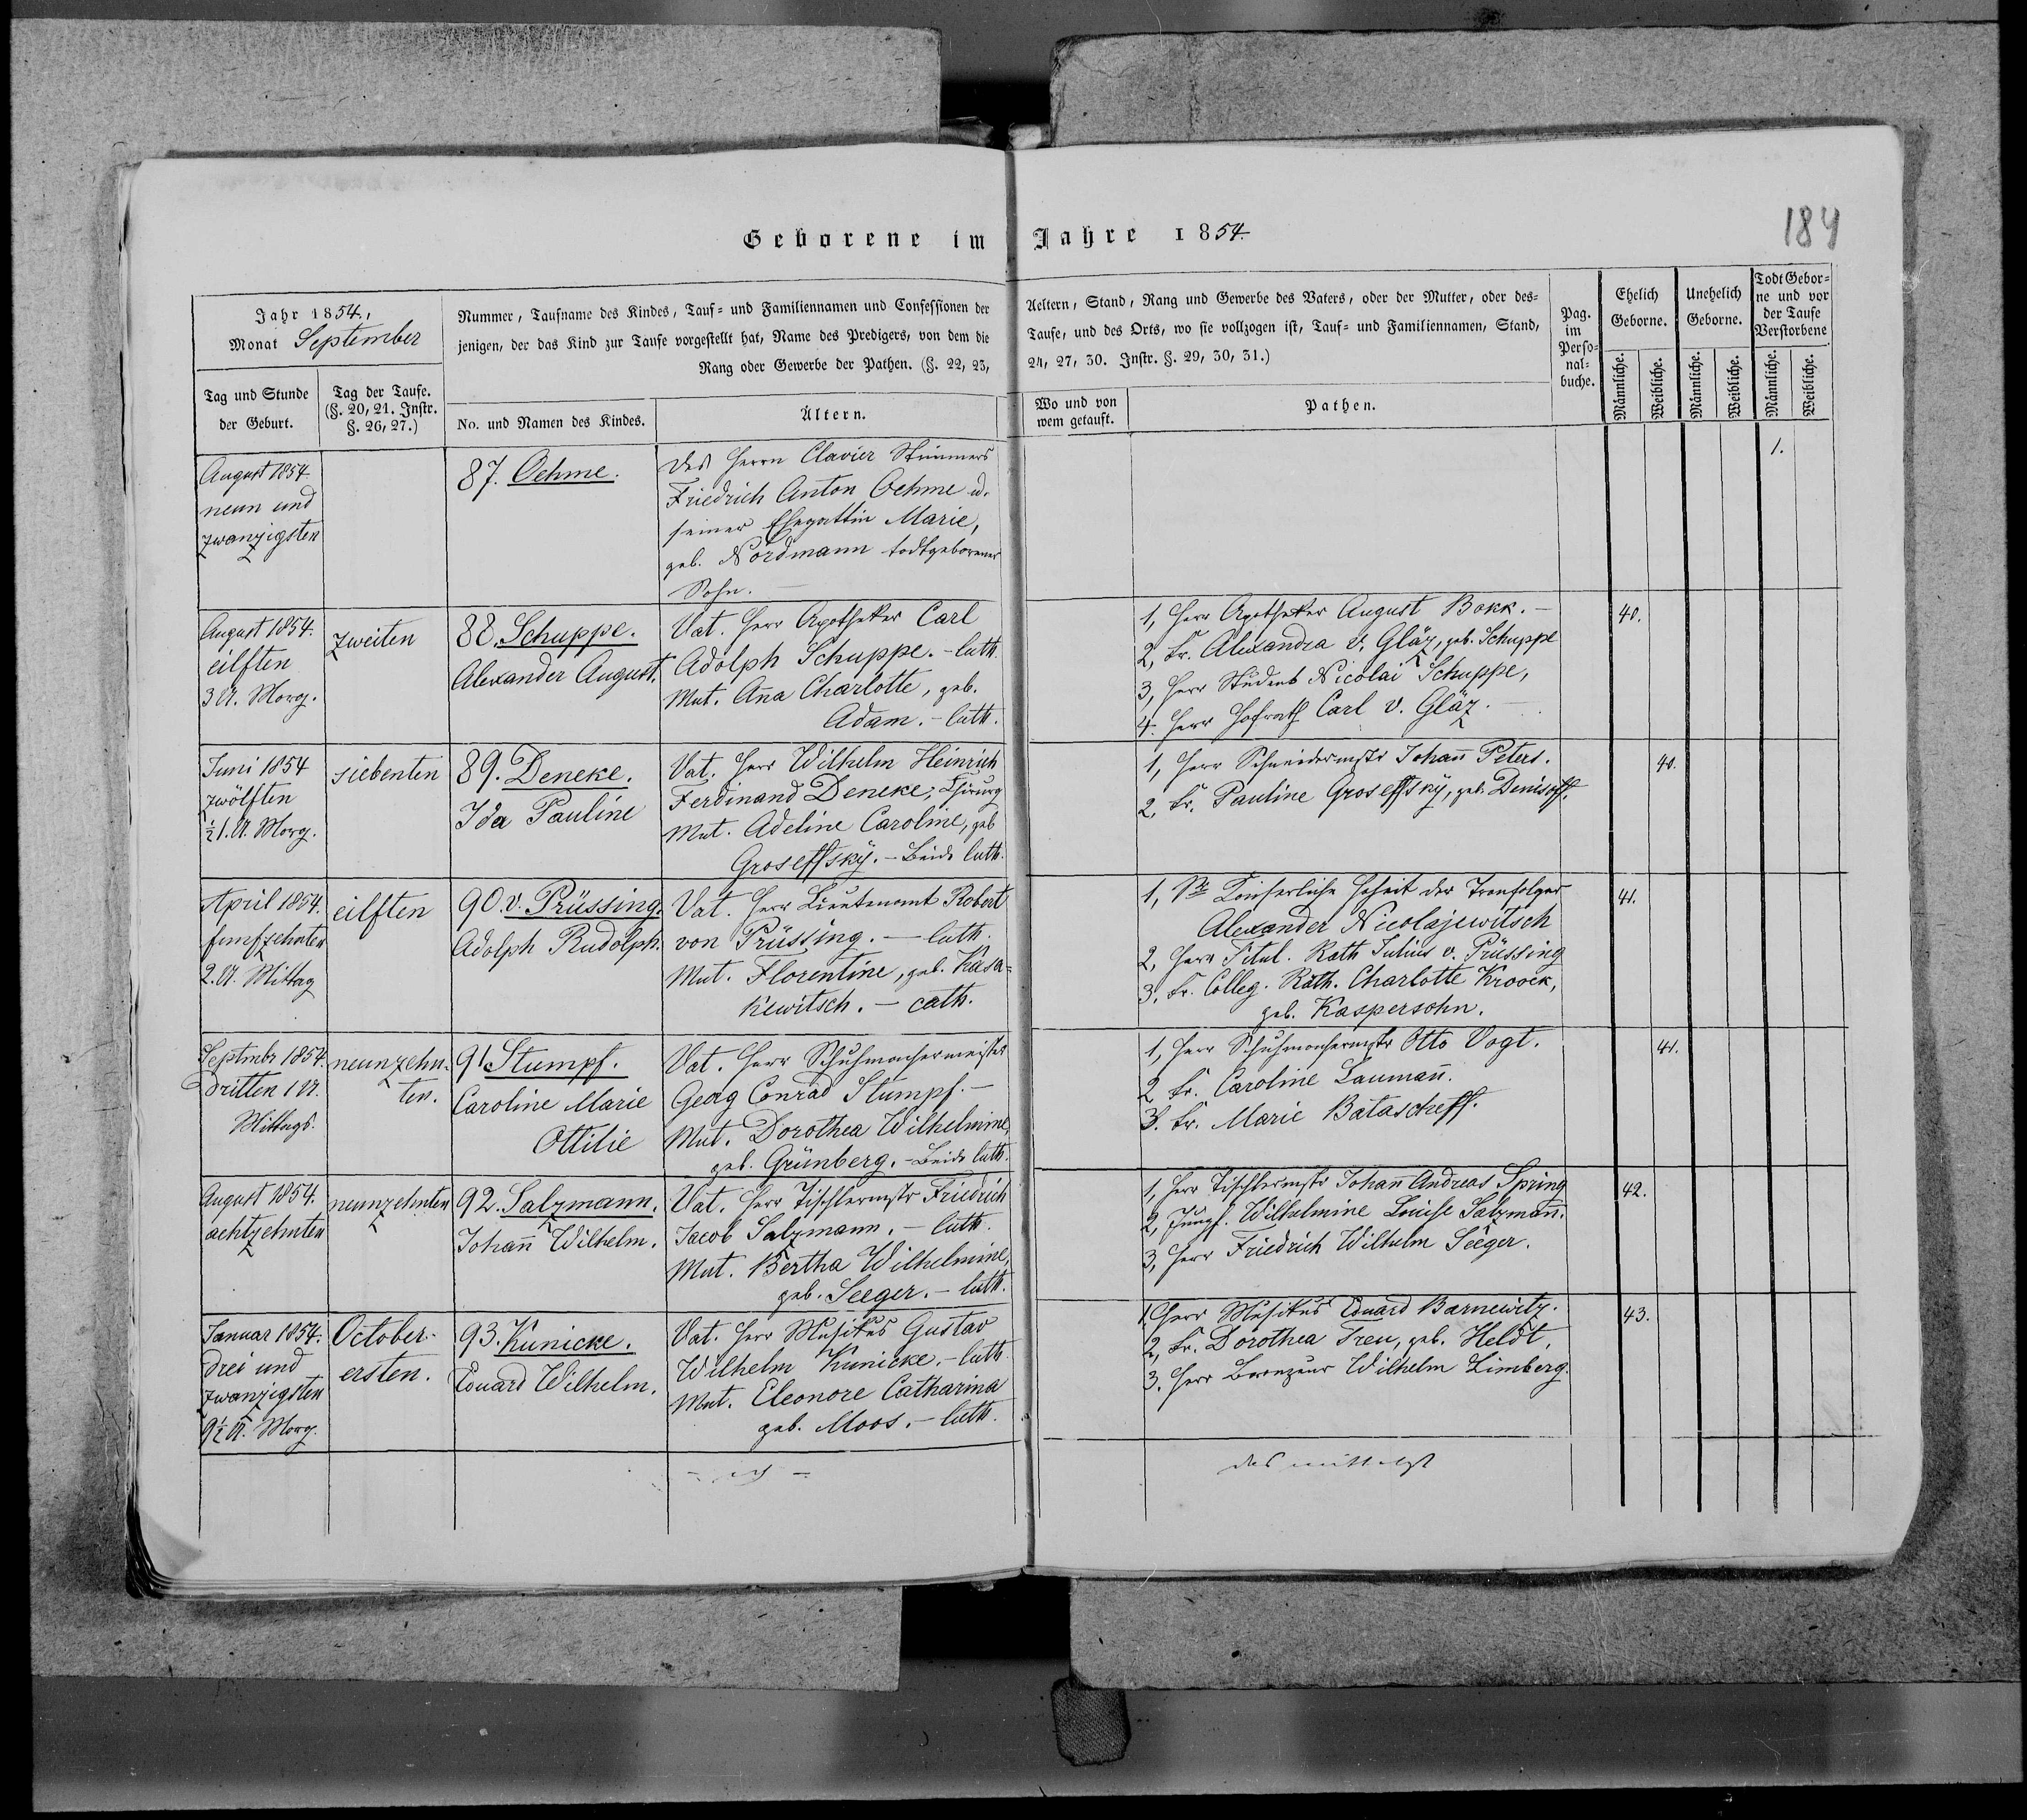 Geborene im Jahre 1854.
184
Jahr 1854,
Monat September
Nummer, Taufname des Kindes, Tauf- und Familiennamen und Confessionen der
jenigen, der das Kind zur Taufe vorgestellt hat, Name des Predigers, von dem die
Rang oder Gewerbe der Pathen. (§. 22, 23,
Aeltern, Stand, Rang und Gewerbe des Vaters, oder der Mutter, oder des-
Taufe, und des Orts, wo sie vollzogen ist, Tauf- und Familiennamen, Stand,
24, 27, 30. Instr. §. 29, 30, 31.)
Pag.
im
Perso-
nal-
buche.
Ehelich
Geborne.
Unehelich
Geborne.
Todt Gebor-
ne und vor
der Taufe
Verstorbene
Männliche.
Weibliche.
Männliche.
Weibliche.
Männliche.
Weibliche.
Tag und Stunde
der Geburt.
Tag der Taufe.
(§. 20, 21. Instr.
§. 26, 27.)
No. und Namen des Kindes.
Ältern.
Wo und von
wem getauft.
Pathen.
August 1854.
neun und
zwanzigsten
87. Oehme.
Des Herrn Clavier Stimmers
Friedrich Anton Oehme u.
seiner Ehegattin Marie,
geb. Nordmann todtgeborener
Sohn.
1.
August 1854.
eilften
3 U. Morg.
zweiten
88. Schuppe.
Alexander August.
Vat. Herr Apotheker Carl
Adolph Schuppe. - luth.
Mut. Ana Charlotte, geb.
Adam. - luth.
1, Herr Apotheker August Bokk. -
2, Fr. Alexandra v. Gläz, geb. Schuppe
3, Herr Student Nicolai Schuppe,
4. Herr Hofrath Carl v. Gläz. -
40.
Juni 1854
zwölften
½1. U. Morg.
siebenten
89. Deneke.
Ida Pauline
Vat. Herr Wilhelm Heinrich
Ferdinand Deneke, Chirurg
Mut. Adeline Caroline, geb
Groseffsky. - Beide luth.
1, Herr Schneidermstr Johan̄ Peters.
2, Fr. Pauline Groseffsky, geb. Denisoff.
40.
April 1854.
funfzehnten
2. U. Mittag
eilften
90. v. Prüssing.
Adolph Rudolph.
Vat. Herr Lieutenant Robert
von Prüssing. - luth.
Mut. Florentine, geb. Kasa-
kewitsch. - cath.
1, Se Kaiserliche Hoheit der Tronfolger
Alexander Nicolajewitsch
2, Herr Titul. Rath Julius v. Prüssing
3. Fr. Colleg. Räth. Charlotte Kroock,
geb. Kaspersohn.
41.
Septmbr 1854.
dritten 1 U.
Mittags.
neunzehn-
ten.
91 Stumpf.
Caroline Marie
Ottilie
Vat. Herr Schuhmachermeister
Georg Conrad Stumpf. -
Mut. Dorothea Wilhelmine,
geb. Grünberg. - Beide luth.
1, Herr Schuhmachermstr Otto Vogt.
2 Fr. Caroline Lauman̄.
3. Fr. Marie Batascheff.
41.
August 1854.
achtzehnten
neunzehnten
92. Salzmann.
Johan̄ Wilhelm.
Vat. Herr Tischlermstr Friedrich
Jacob Salzmann. - luth.
Mut. Bertha Wilhelmine,
geb. Seeger. - luth.
1, Herr Tischlermstr Johan̄ Andreas Spring
2, Jungf. Wilhelmine Louise Salzman̄.
3, Herr Friedrich Wilhelm Seeger.
42.
Januar 1854.
drei und
zwanzigsten
9½ U. Morg.
October.
ersten.
93. Kunicke.
Eduard Wilhelm.
Vat. Herr Musikus Gustav
Wilhelm Kunicke. - luth.
Mut. Eleonore Catharina
geb. Moos. - luth.
1. Herr Musikus Eduard Barnewitz.
2, Fr. Dorothea Treu, geb. Heldt,
3. Herr Wilhelm Limberg.
43.